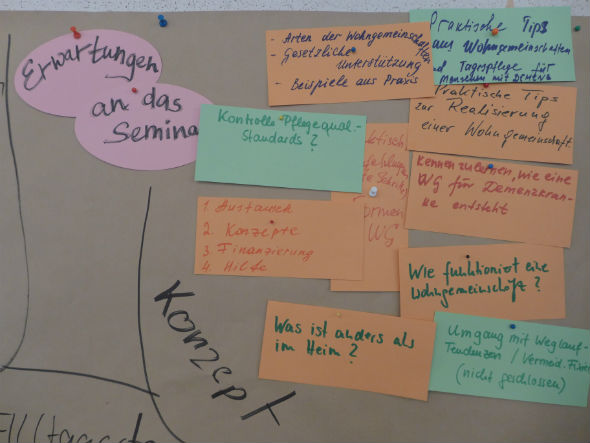 Erwartungen
an das
Seminar
- Arten der Wohngemeinschaften
- Gesetzliche
Unterstützung
- Beispiele aus Praxis
Praktische Tips
aus Wohngemeinschaften
und Tagespflege für
Menschen mit Demenz
Praktische Tips
zur Realisierung
einer Wohngemeinschaft
Kontrolle Pflegequal.-
Standards?
Formen
WG
Kennenzulernen, wie eine
WG für Demenzkran-
ke entsteht
1. Austausch
2. Konzepte
3. Finanzierung
4. Hilfe
Wie funktioniert eine
Wohngemeinschaft?
Was ist anders als
im Heim?
Umgang mit Weglauf-
Tendenzen / Vermeid. Fixier
(nicht geschlossen)
Konzept